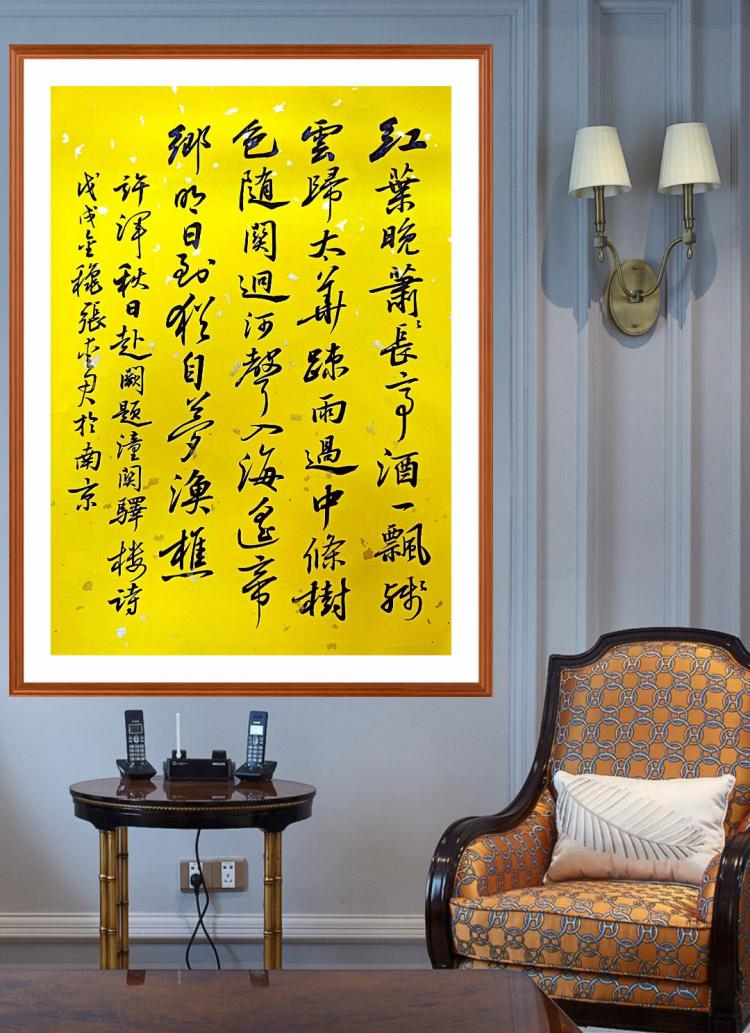 紅葉晚蕭〻長亭酒一飄殘
雲歸太華疎雨過中條樹
色随関迥河聲入海遥帝
鄉明日到猶自夢漁樵
許渾秋日赴闕題潼関驛楼诗
戊戌金穐張君於南京